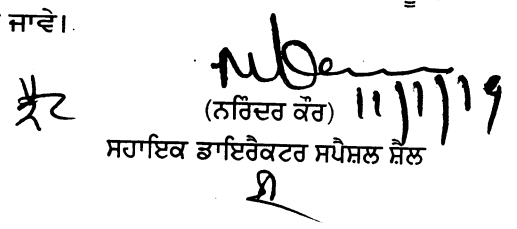 ਜਾਵੇ।
(ਨਰਿੰਦਰ ਕੌਰ) 11/1/19
ਸਹਾਇਕ ਡਾਇਰੈਕਟਰ ਸਪੈਸ਼ਲ ਸ਼ੈਲ